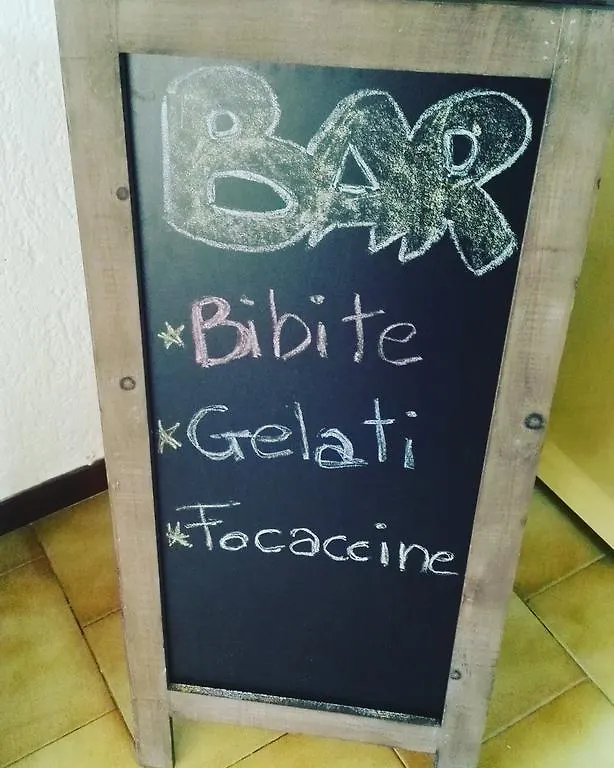 BAR
* Bibite
* Gelati
* Focaccine